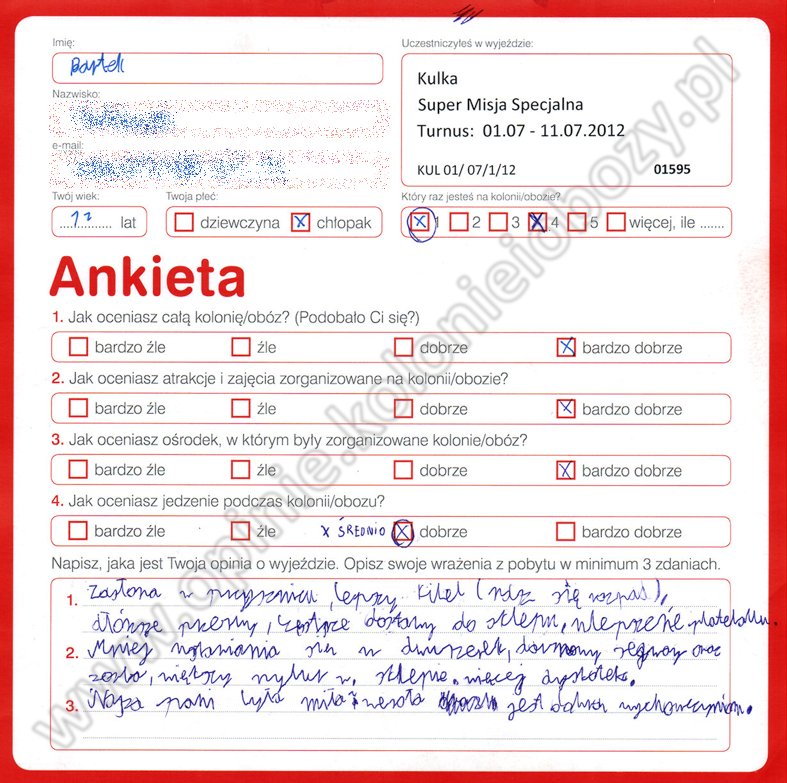 Imię:
Bartek
Uczestniczyłeś w wyjeździe:
Kulka
Super Misja Specjalna
Turnus: 01.07 - 11.07.2012
KUL 01/ 07/1/12 01595
Nazwisko:
e-mail:
Twój wiek:
12 lat
Twoja płeć:
dziewczyna x chłopak
Który raz jesteś na kolonii/obozie?
x 1 2 3 x 4 5 więcej, ile .......
Ankieta
1. Jak oceniasz całą kolonię/obóz? (Podobało Ci się?)
bardzo źle źle dobrze x bardzo dobrze
2. Jak oceniasz atrakcje i zajęcia zorganizowane na kolonii/obozie?
bardzo źle źle dobrze x bardzo dobrze
3. Jak oceniasz ośrodek, w którym były zorganizowane kolonie/obóz?
bardzo źle źle dobrze x bardzo dobrze
4. Jak oceniasz jedzenie podczas kolonii/obozu?
bardzo źle źle x ŚREDNIO x dobrze bardzo dobrze
Napisz, jaka jest Twoja opinia o wyjeździe. Opisz swoje wrażenia z pobytu w minimum 3 zdaniach.
1. Zasłona w prysznicu, lepszy kibel (nasz się rozpadł),
dłuższe przerwy, częstsze dostawy do sklepu, ulepszenie.
2. Mniej w, darmowy segway oraz
zorba, większy wybór w sklepie. więcej dyskotek.
3. Nasza pani była miła i wesoła jest dobrym wychowawcą.
www.opinie.kolonieiobozy.pl